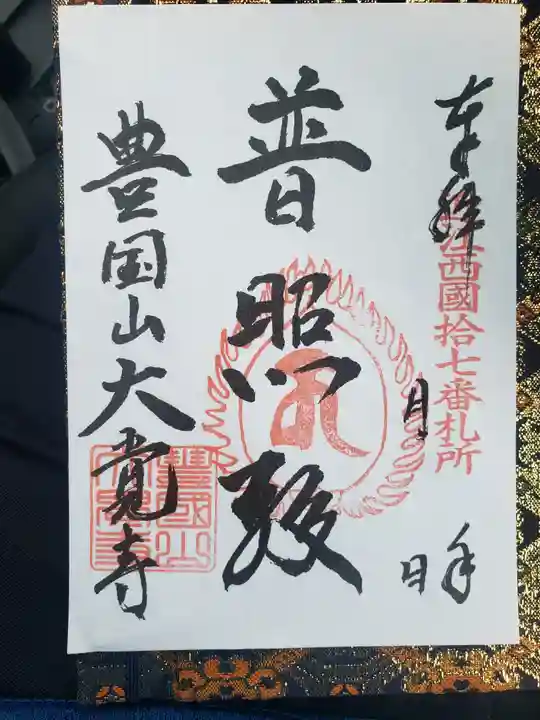 奉拝
西國拾七番札所
年
月
日
普照殿
豊国山大覚寺
豐國山